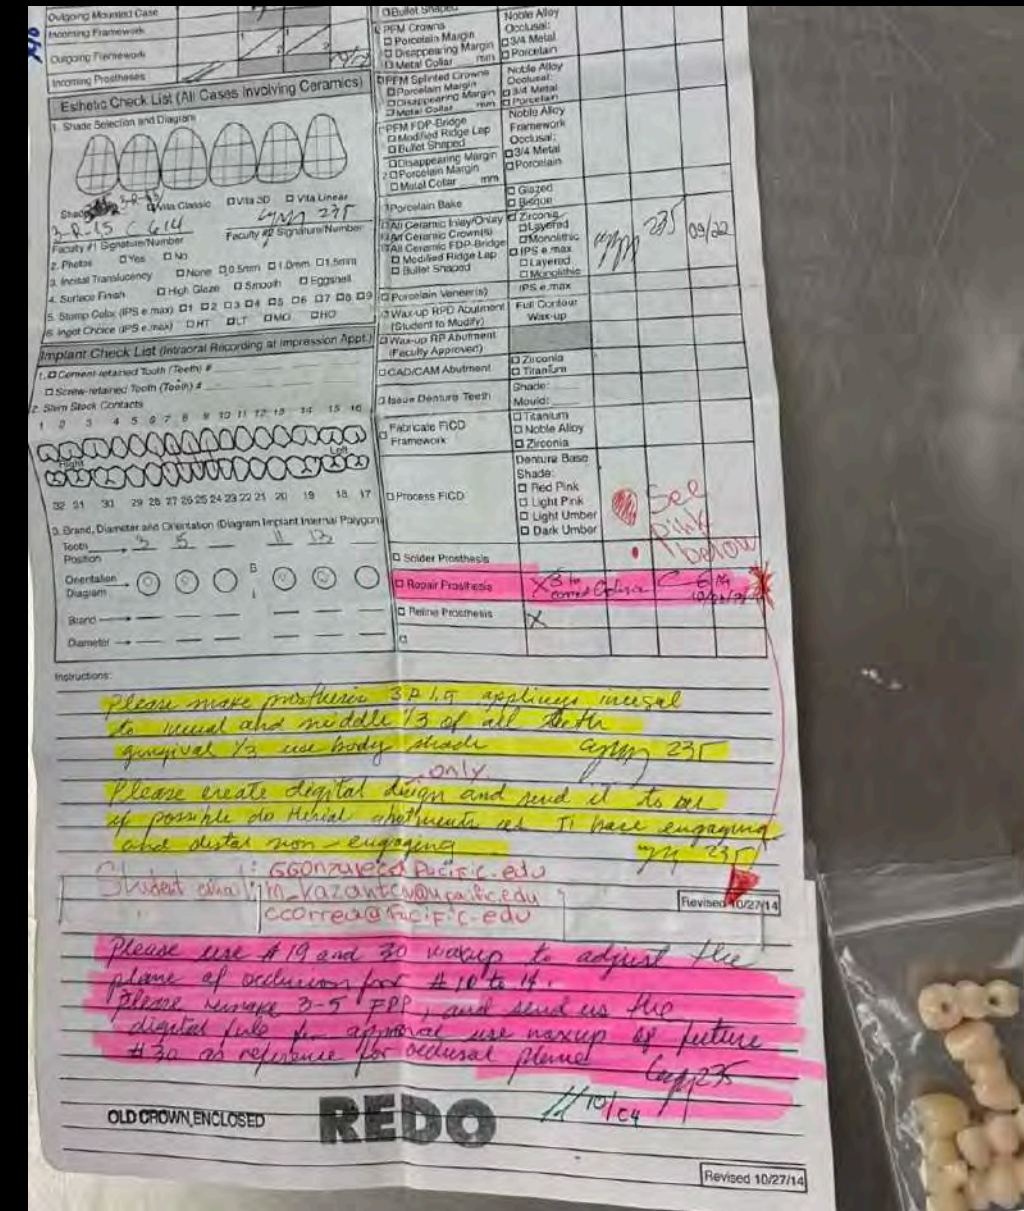 Outgoing Mounted Case
Incoming Framework
Outgoing Framework
Incoming Prostheses
Esthetic Check List (All Cases Involving Ceramics)
1. Shade Selection and Diagram
Vita Classic
Vita 3D
Vita Linear
235
Faculty #1 Signature/Number
Faculty #2 Signature/Number
2. Photos
Yes
No
3. Incisal Translucency
None
0.5mm
1.0mm
1.5mm
4. Surface Finish
High Glaze
Smooth
Eggshell
5. Stump Color (IPS e.max)
1 2 3 4 5 6 7 8 9
6. Ingot Choice (IPS e.max)
HT
LT
MO
HO
Implant Check List (Intraoral Recording at Impression Appt.)
1. Cement-retained Tooth (Teeth) #
Screw-retained Tooth (Teeth) #
2. Stem Stock Contacts
1 2 3 4 5 6 7 8 9 10 11 12 13 14 15 16
Right
Left
32 31 30 29 28 27 26 25 24 23 22 21 20 19 18 17
3. Brand, Diameter and Orientation (Diagram Implant Internal Polygon)
Tooth Position
3 5 11 13
Orientation Diagram
B
Brand
Diameter
Bullet Shaped
PFM Crowns
Porcelain Margin
Disappearing Margin
Metal Collar mm
Noble Alloy
Occlusal:
3/4 Metal
Porcelain
PFM Splinted Crowns
Porcelain Margin
Disappearing Margin
Metal Collar mm
Noble Alloy
Occlusal:
3/4 Metal
Porcelain
PFM FDP-Bridge
Modified Ridge Lap
Bullet Shaped
Disappearing Margin
Porcelain Margin
Metal Collar mm
Noble Alloy
Framework
Occlusal:
3/4 Metal
Porcelain
Porcelain Bake
Glazed
Bisque
All Ceramic Inlay/Onlay
All Ceramic Crown(s)
All Ceramic FDP-Bridge
Modified Ridge Lap
Bullet Shaped
Zirconia
Layered
Monolithic
IPS e.max
Layered
Monolithic
235
09/22
Porcelain Veneer(s)
IPS e.max
Wax-up RPD Abutment
(Student to Modify)
Full Contour
Wax-up
Wax-up RP Abutment
(Faculty Approved)
CAD/CAM Abutment
Zirconia
Titanium
Issue Denture Teeth
Shade:
Mould:
Fabricate FICD
Framework
Titanium
Noble Alloy
Zirconia
Process FICD
Denture Base
Shade:
Red Pink
Light Pink
Light Umber
Dark Umber
See
Pink
below
Solder Prosthesis
Repair Prosthesis
Reline Prosthesis
X
Instructions:
Please make prosthesis 3P1.5 appling incisal
to incisal and middle 1/3 of all teeth
gingival 1/3 use body shade 235
only.
Please create digital design and send it to us
if possible do Mesial abutments as Ti base engaging
and distal non-engaging 235
Student email:
Revised 10/27/14
Please use #19 and 30 waxup to adjust the
plane of occlusion for
Please remake 3-5 FDP, and send us the
digital file for approval use waxup of future
#30 as reference for occlusal plane
235
10/04
OLD CROWN ENCLOSED
REDO
Revised 10/27/14